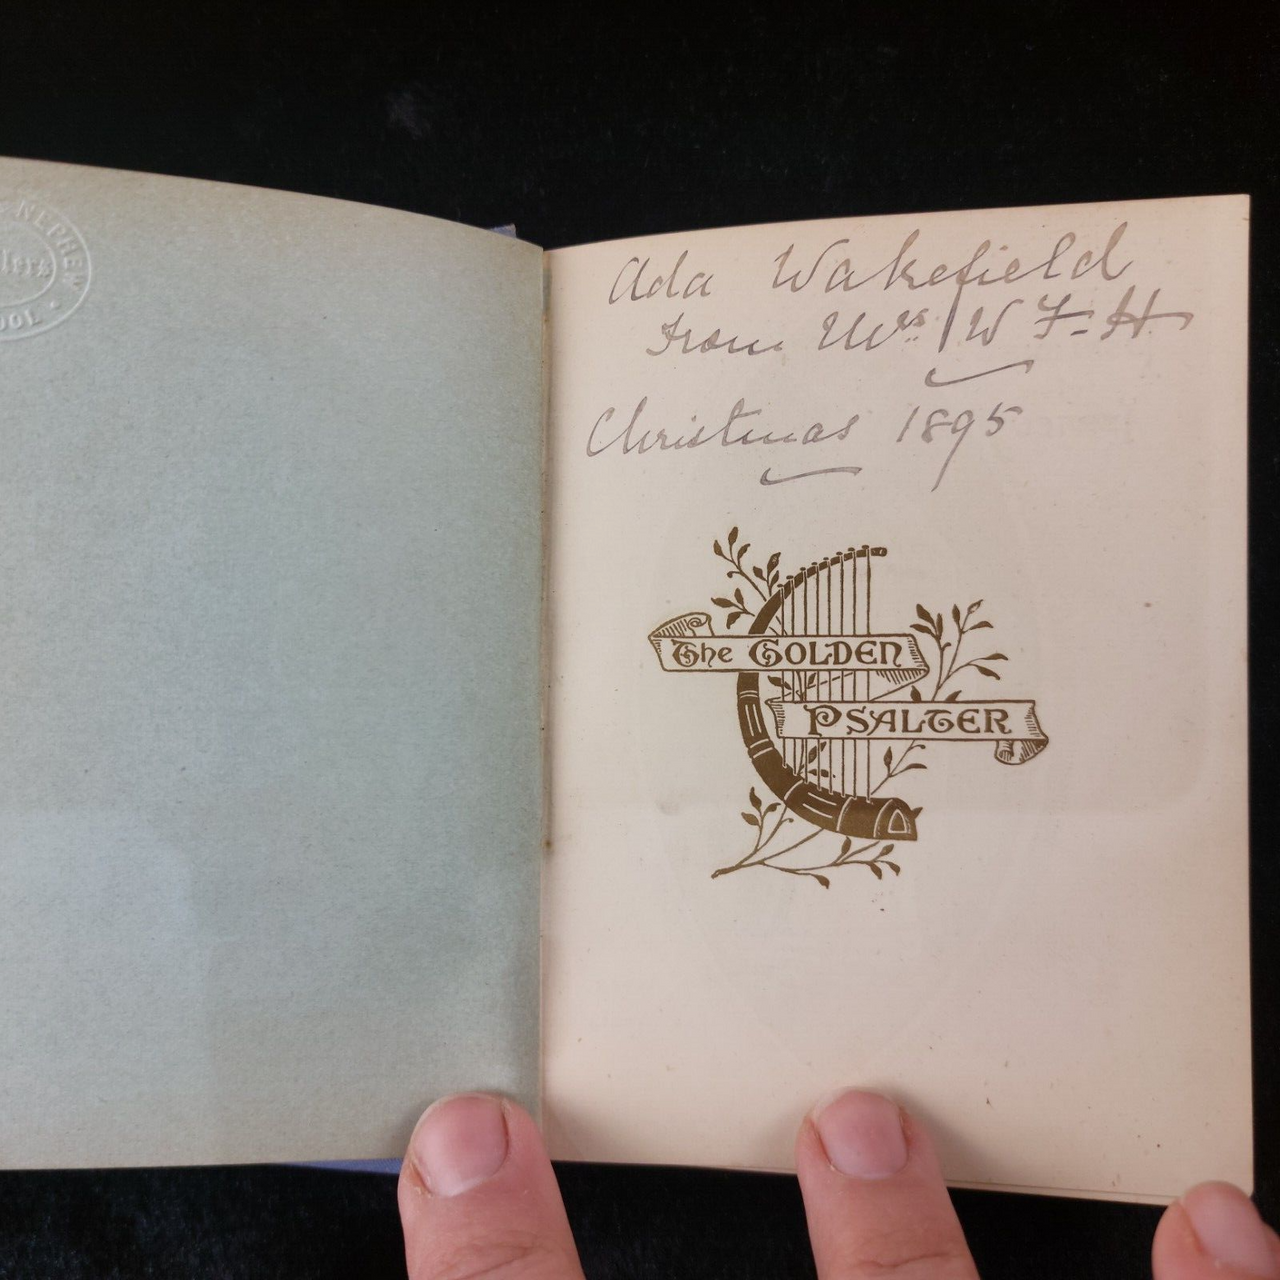 NEPHEW
lers
OOL
Ada Wakefield
From Mrs W F-H
Christmas 1895
The GOLDEN
PSALTER